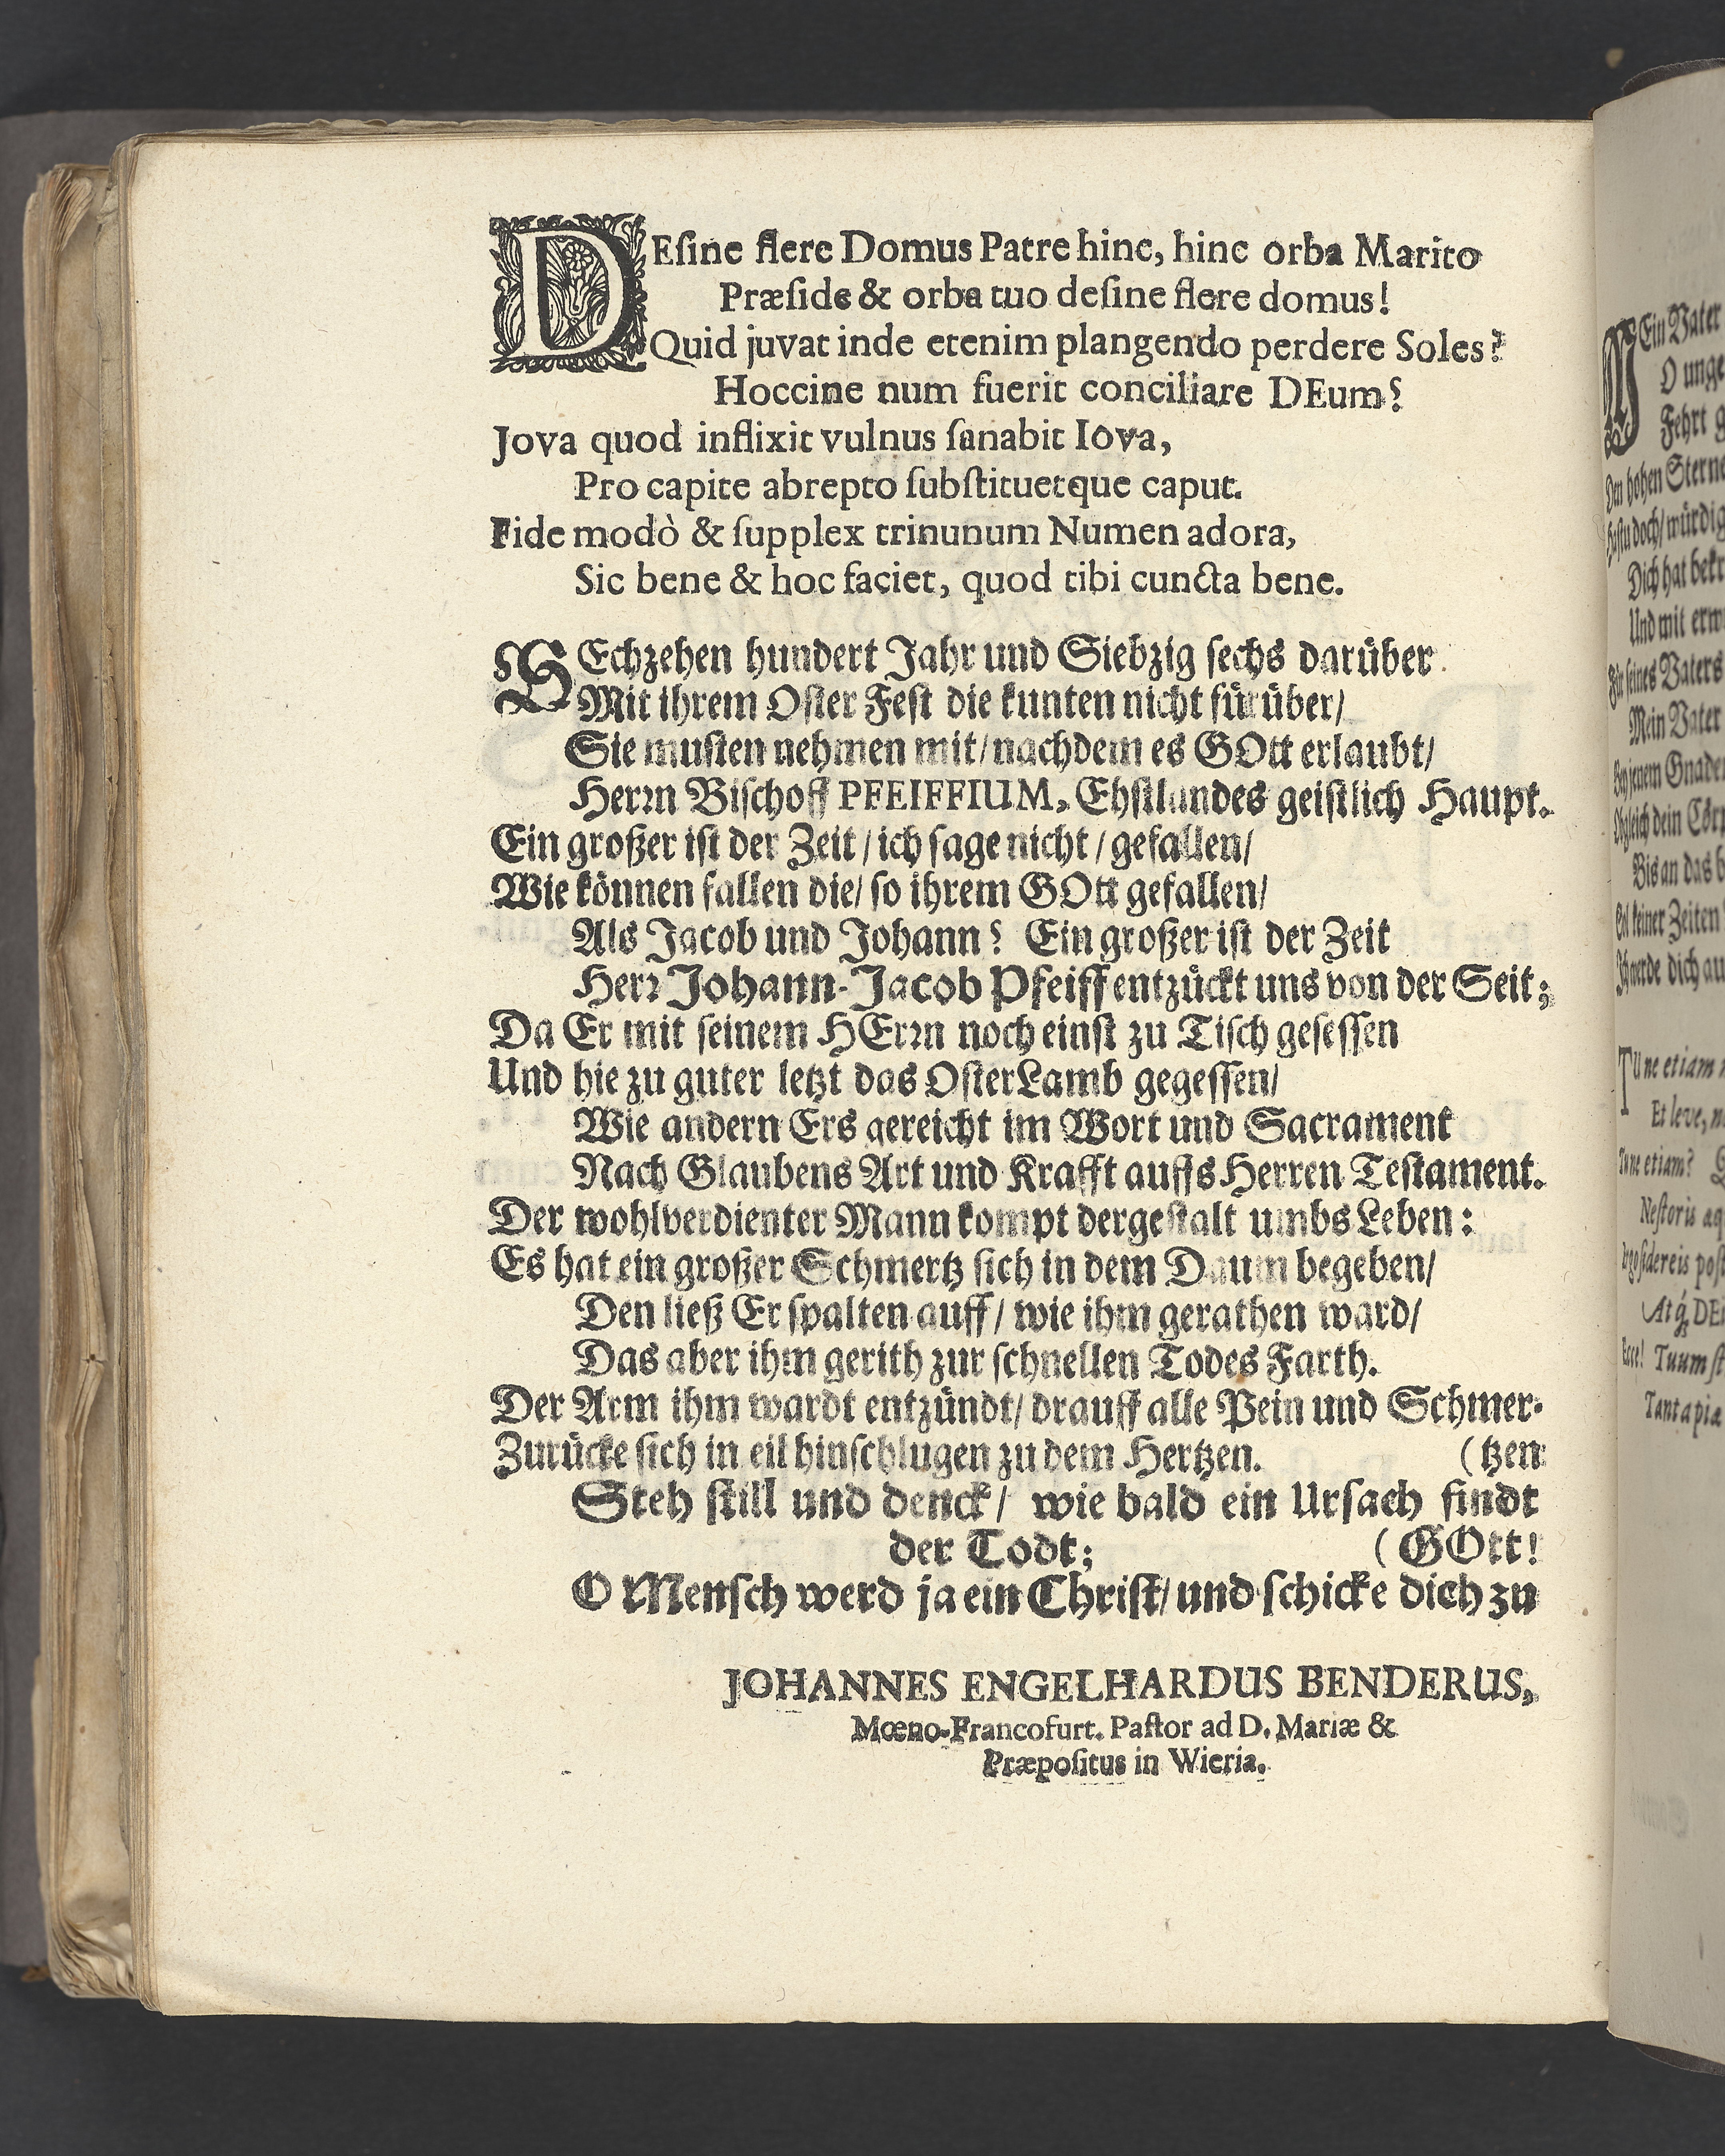 DEſine flere Domus Patre hinc, hinc orba Marito
Præſide & orba tuo deſine flere domus!
Quid juvat inde etenim plangendo perdere Soles?
Hoccine num fuerit conciliare DEum?
Jova quod inflixit vulnus ſanabit Iova,
Pro capite abrepto ſubſtituetque caput.
Fide modò & ſupplex trinunum Numen adora,
Sic bene & hoc faciet, quod tibi cuncta bene.
SEchzehen hundert Jahr und Siebzig ſechs darüber
Mit ihrem Oſter Feſt die kunten nicht fürüber/
Sie muſten nehmen mit/ nachdem es GOtt erlaubt/
Herꝛn Biſchoff PFEIFFIUM, Ehſtlandes geiſtlich Haupt.
Ein großer iſt der Zeit/ ich ſage nicht/ gefallen/
Wie können fallen die/ ſo ihrem GOtt gefallen/
Als Jacob und Johann? Ein großer iſt der Zeit
Herꝛ Johann-Jacob Pfeiff entzückt uns von der Seit;
Da Er mit ſeinem HErꝛn noch einſt zu Tiſch geſeſſen
Und hie zu guter letzt das OſterLamb gegeſſen/
Wie andern Ers gereicht im Wort und Sacrament
Nach Glaubens Art und Krafft auffs Herren Teſtament.
Der wohlverdienter Mann kompt dergeſtalt umbs Leben:
Es hat ein großer Schmertz ſich in dem Daum begeben/
Den ließ Er ſpalten auff/ wie ihm gerathen ward/
Das aber ihm gerith zur ſchnellen Todes Farth.
Der Arm ihm wardt entzündt/ drauff alle Pein und Schmer-
Zurücke ſich in eil hinſchlugen zu dem Hertzen. (tzen
Steh ſtill und denck/ wie bald ein Urſach findt
der Todt; (GOtt!
O Menſch werd ja ein Chriſt/ und ſchicke dich zu
JOHANNES ENGELHARDUS BENDERUS,
Mœno-Francofurt. Paſtor ad D. Mariæ &
Præpoſitus in Wieria.
MEin Vater
O unge
Den hohen Sterne
Dich hat bekr
Und mit erw
Für ſeines Vaters
Mein Vater
Bis an das
TUne etiam
Et leve,
Tune etiam?
Neſtoris
Atq́; DE
Ecce! Tuum